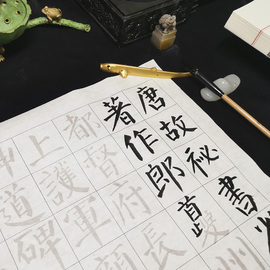 唐故祕書省
著作郎夔州
都督府長
上護軍顏
神道碑